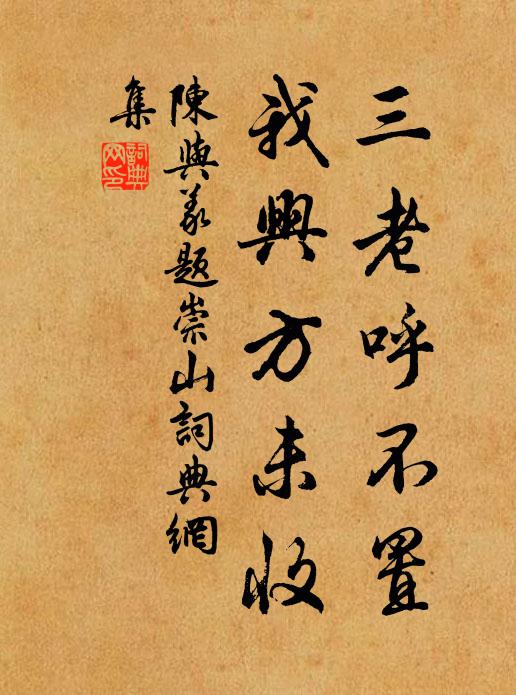 三老呼不置
我興方未收
陳與義題崇山詞典網
集
詞典網印